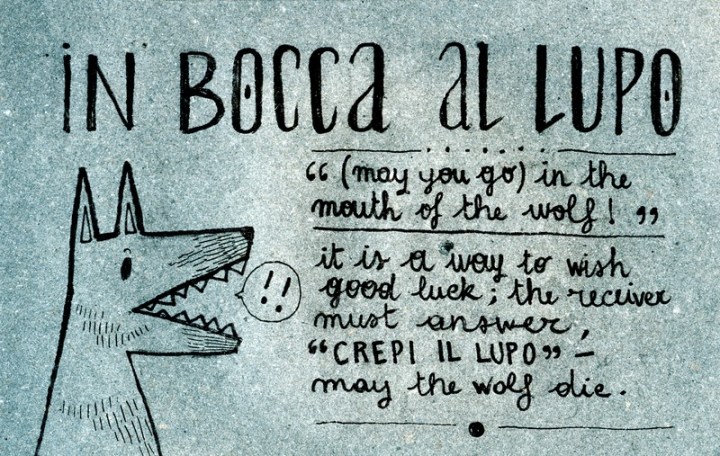 iN BOCCa al LUPO
“ (may you go) in the
mouth of the wolf! ”
it is a way to wish
good luck; the receiver
must answer,
“CREPI IL LUPO” –
may the wolf die.
!!